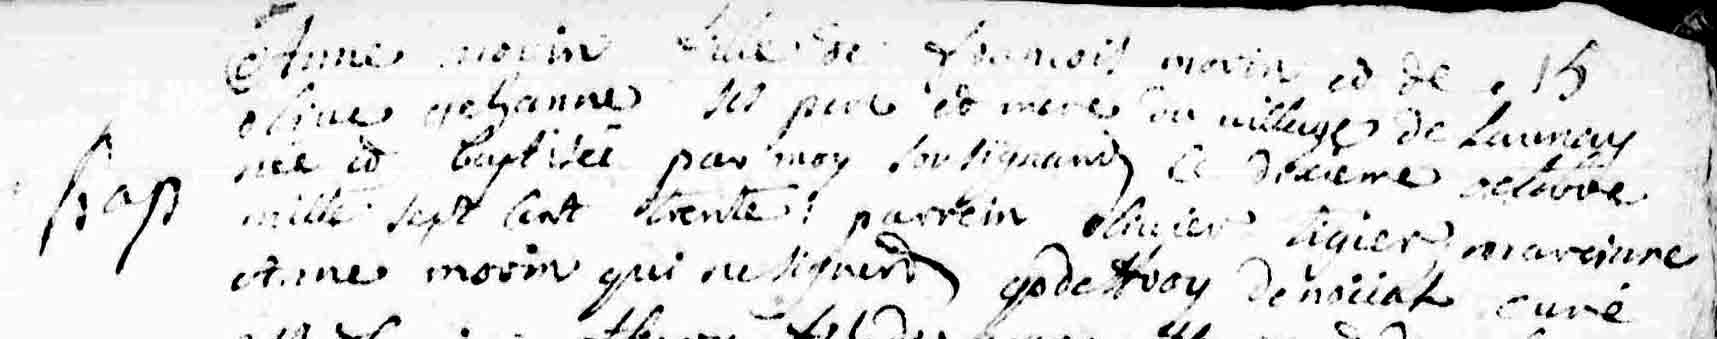 Anne morin fille de francois morin et de
olive jehanne ses pere et mere du village de Launay
née et baptisée par moy soussignant le dixieme octobre
Bap
mille sept cent trente parrein olivier tigier mareinne
Anne morin qui ne signent godeffroy curé